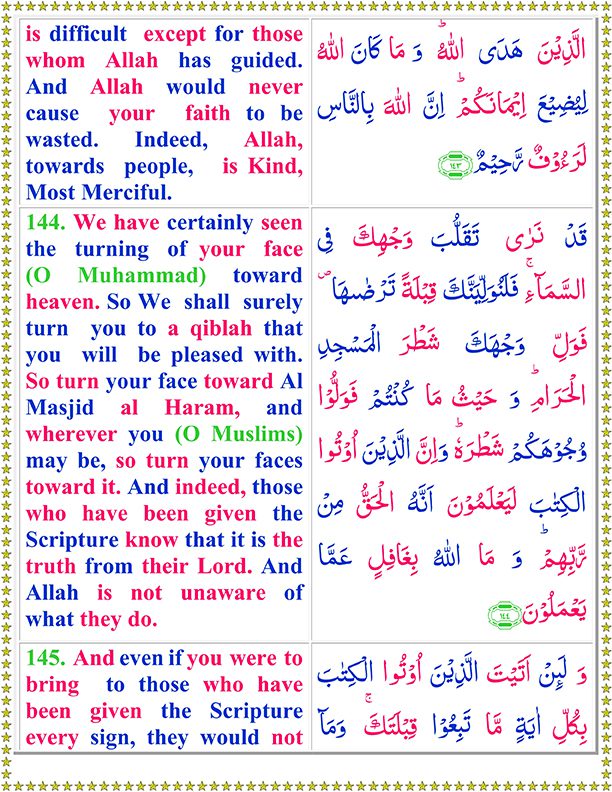 is difficult except for those
whom Allah has guided.
And Allah would never
cause your faith to be
wasted. Indeed, Allah,
towards people, is Kind,
Most Merciful.
الَّذِيْنَ هَدَى اللّٰهُ ؕ وَ مَا كَانَ اللّٰهُ
لِيُضِيْعَ اِيْمَانَكُمْ ؕ اِنَّ اللّٰهَ بِالنَّاسِ
لَرَءُوْفٌ رَّحِيْمٌ ۝۱۴۳
144. We have certainly seen
the turning of your face
(O Muhammad) toward
heaven. So We shall surely
turn you to a qiblah that
you will be pleased with.
So turn your face toward Al
Masjid al Haram, and
wherever you (O Muslims)
may be, so turn your faces
toward it. And indeed, those
who have been given the
Scripture know that it is the
truth from their Lord. And
Allah is not unaware of
what they do.
قَدْ نَرٰى تَقَلُّبَ وَجْهِكَ فِى
السَّمَآءِ ۚ فَلَنُوَلِّيَنَّكَ قِبْلَةً تَرْضٰىهَا ۪
فَوَلِّ وَجْهَكَ شَطْرَ الْمَسْجِدِ
الْحَرَامِ ؕ وَ حَيْثُ مَا كُنْتُمْ فَوَلُّوْا
وُجُوْهَكُمْ شَطْرَهٗ ؕ وَاِنَّ الَّذِيْنَ اُوْتُوا
الْكِتٰبَ لَيَعْلَمُوْنَ اَنَّهُ الْحَقُّ مِنْ
رَّبِّهِمْ ؕ وَ مَا اللّٰهُ بِغَافِلٍ عَمَّا
يَعْمَلُوْنَ ۝۱۴۴
145. And even if you were to
bring to those who have
been given the Scripture
every sign, they would not
وَ لَئِنْ اَتَيْتَ الَّذِيْنَ اُوْتُوا الْكِتٰبَ
بِكُلِّ اٰيَةٍ مَّا تَبِعُوْا قِبْلَتَكَ ۚ وَمَاۤ